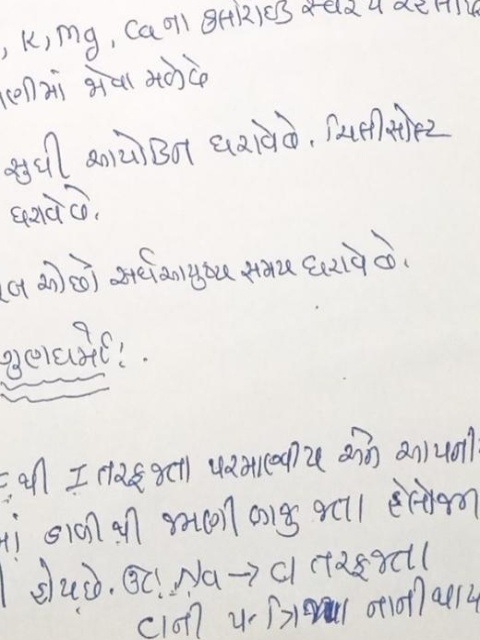 , K, Mg, Ca ના ક્લોરાઇડ સ્વરૂપે
ણીમાં જોવા મળે છે
સુધી આયોડિન ધરાવે છે. ચિલીસોલ્ટ
ધરાવે છે.
ઓછો અર્ધઆયુષ્ય સમય ધરાવે છે.
ગુણધર્મ:
થી I તરફ જતા પરમાણ્વીય અને આયની
માં ડાબી થી જમણી બાજુ જતા હેલોજન
હોય છે. ઉદા. Na → Cl તરફ જતા
Cl ની નાની થાય